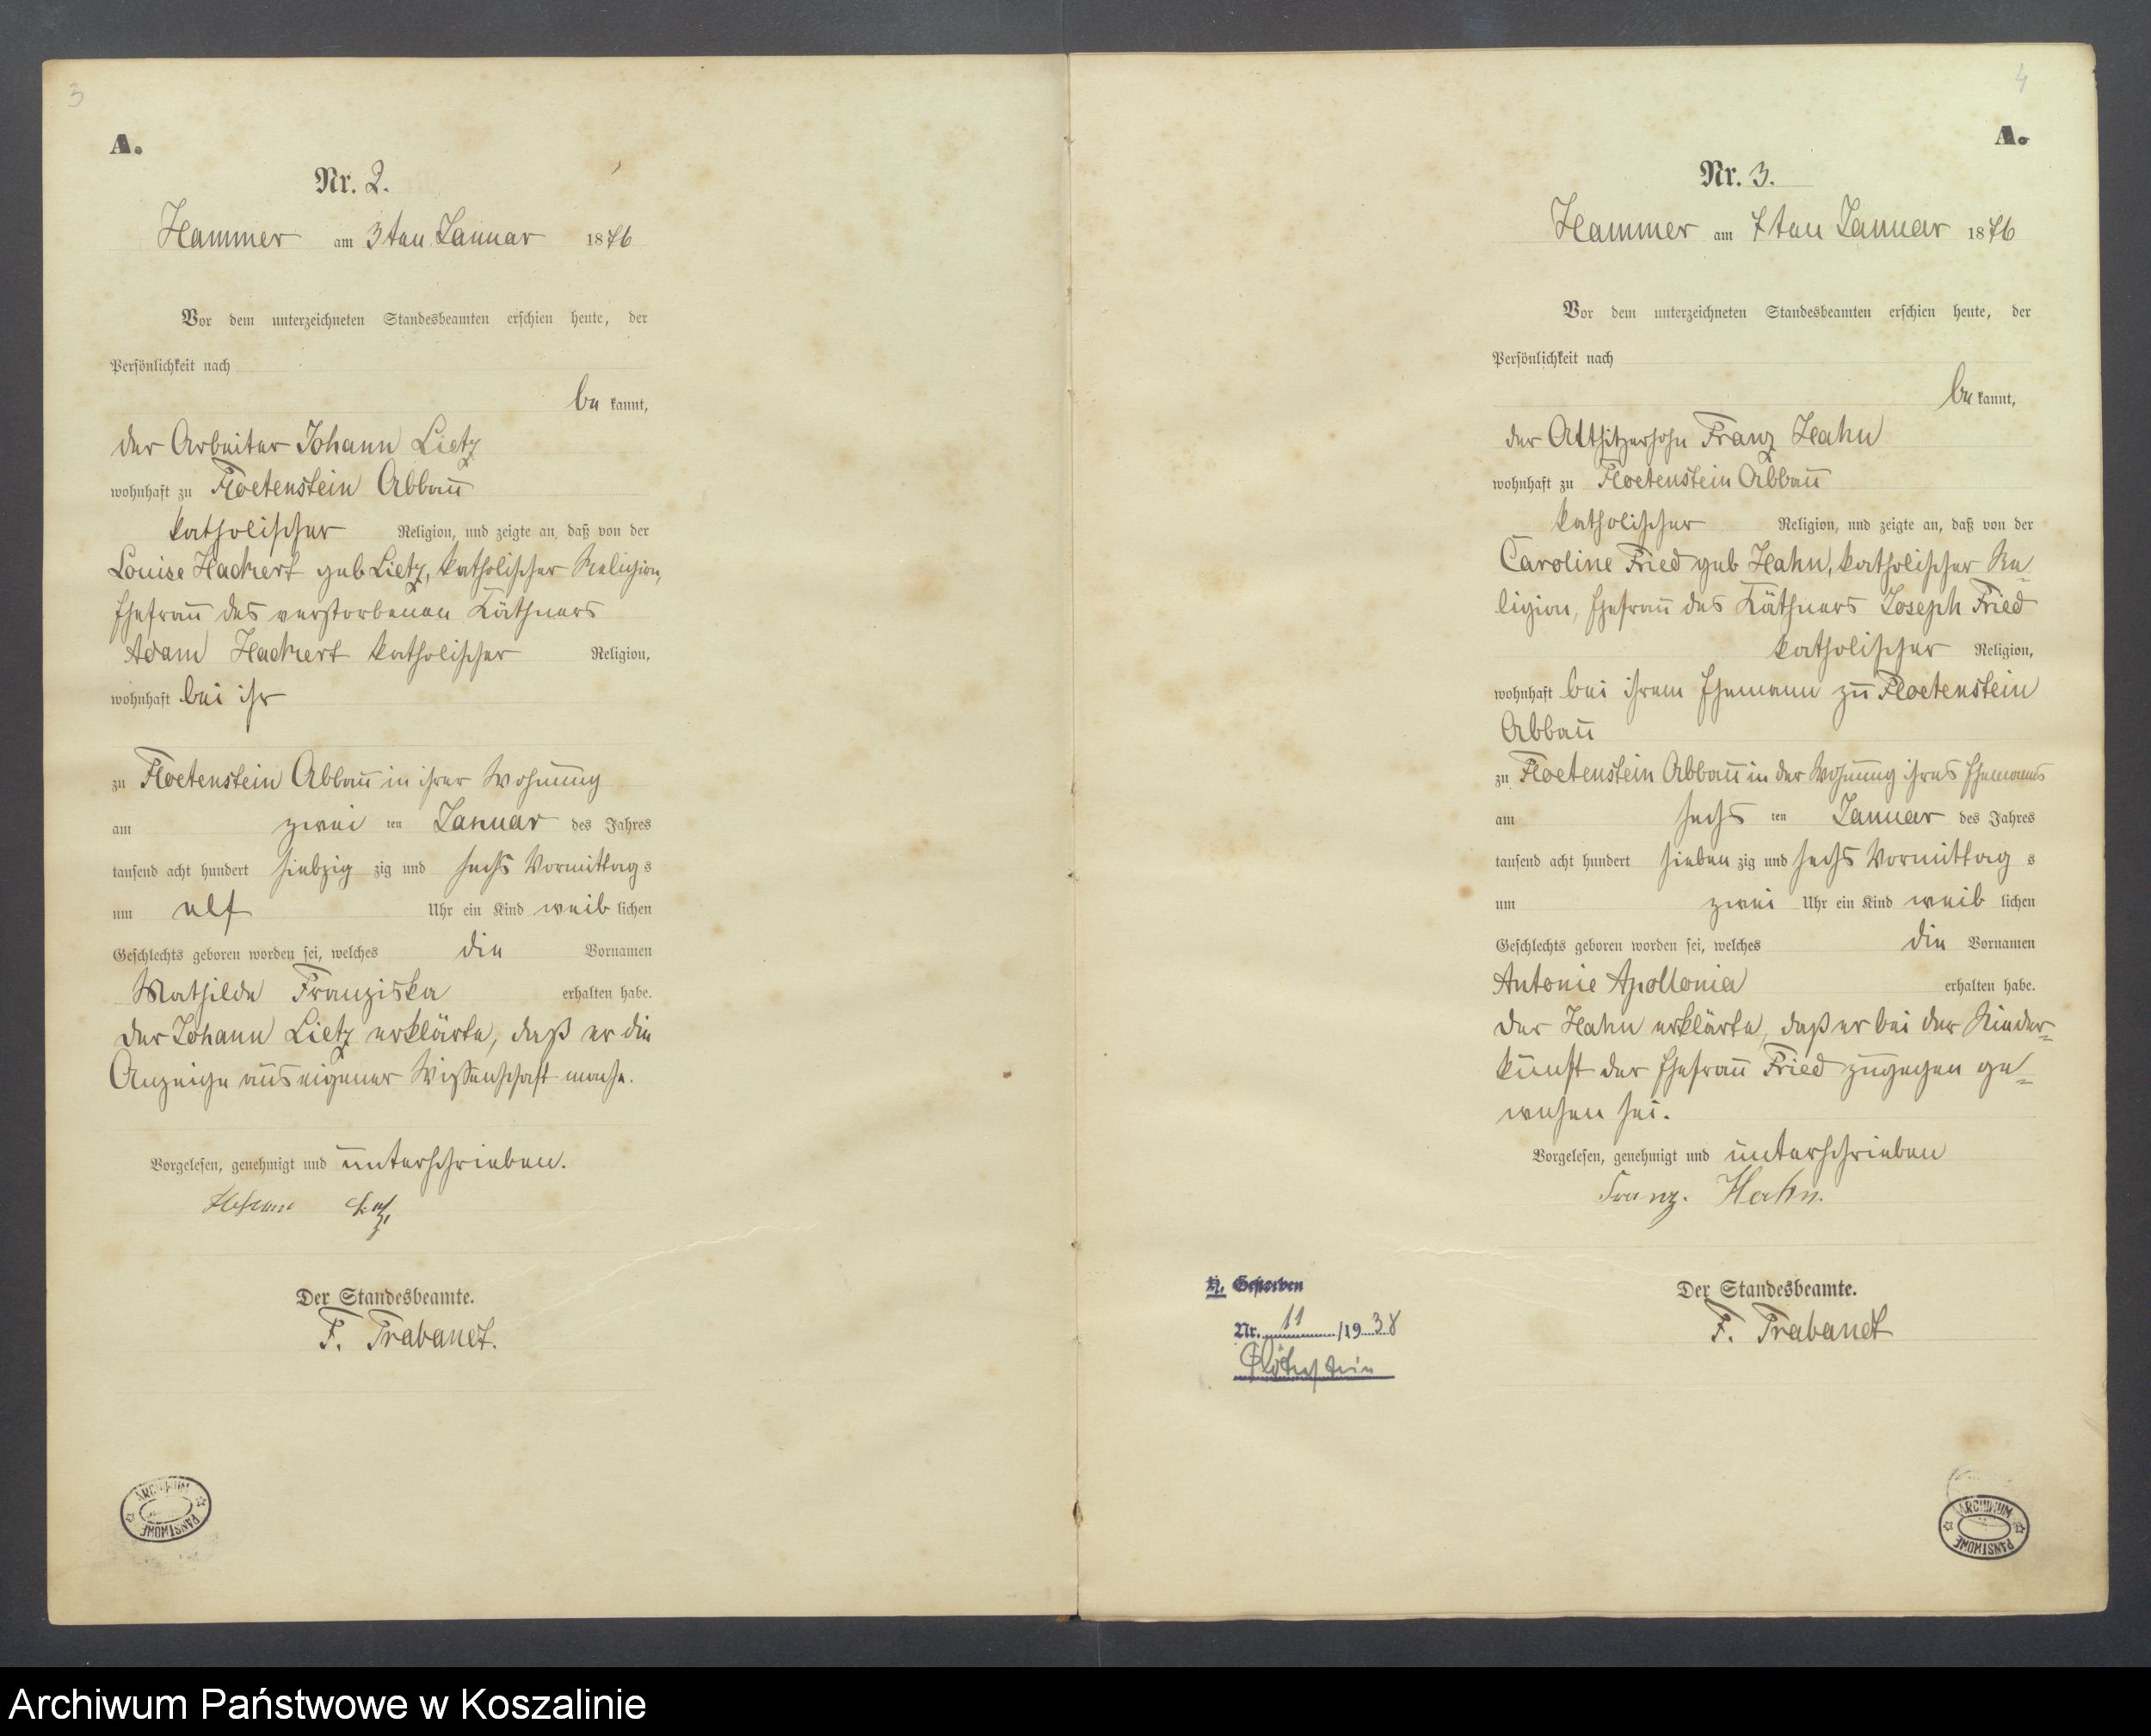 3
A.
Nr. 2.
Hammer am 3ten Januar 1876
Vor dem unterzeichneten Standesbeamten erschien heute, der
Persönlichkeit nach
be kannt,
der Arbeiter Johann Lietz
wohnhaft zu Floetenstein Abbau
katholischer Religion, und zeigte an, daß von der
Louise Hackert geb Lietz, katholischer Religion,
Ehefrau des verstorbenen Käthners
Adam Hackert katholischer Religion,
wohnhaft bei ihr
zu Floetenstein Abbau in ihrer Wohnung
am zwei ten Januar des Jahres
tausend acht hundert siebzig zig und sechs Vormittag s
um elf Uhr ein Kind weib lichen
Geschlechts geboren worden sei, welches die Vornamen
Mathilde Franziska erhalten habe.
der Johann Lietz erklärte, daß er die
Anzeige aus eigener Wissenschaft mache.
Vorgelesen, genehmigt und unterschrieben.
Johann Lietz
Der Standesbeamte.
F. Trabandt.
ARCHIWUM PAŃSTWOWE
4
A.
Nr. 3.
Hammer am 7ten Januar 1876
Vor dem unterzeichneten Standesbeamten erschien heute, der
Persönlichkeit nach
be kannt,
der Altsitzersohn Franz Hahn
wohnhaft zu Floetenstein Abbau
katholischer Religion, und zeigte an, daß von der
Caroline Fried geb Hahn, katholischer Re=
ligion, Ehefrau des Käthners Joseph Fried
katholischer Religion,
wohnhaft bei ihrem Ehemann zu Floetenstein
Abbau
zu Floetenstein Abbau in der Wohnung ihres Ehemanns
am sechs ten Januar des Jahres
tausend acht hundert sieben zig und sechs Vormittag s
um zwei Uhr ein Kind weib lichen
Geschlechts geboren worden sei, welches die Vornamen
Antonie Apollonia erhalten habe.
der Hahn erklärte, daß er bei der Nieder=
kunft der Ehefrau Fried zugegen ge=
wesen sei.
Vorgelesen, genehmigt und unterschrieben
Franz. Hahn.
Der Standesbeamte.
F. Trabandt
Gestorben
Nr. 11 /19 38
Flötenstein
ARCHIWUM PAŃSTWOWE
Archiwum Państwowe w Koszalinie